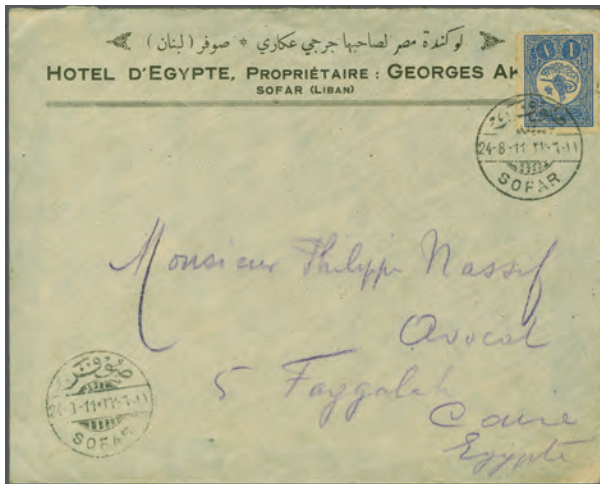 لوكندة مصر لصاحبها جرجي عكاري * صوفر (لبنان)
HOTEL D'EGYPTE, PROPRIÉTAIRE : GEORGES AK
SOFAR (LIBAN)
24-8-11
SOFAR
Monsieur Philippe Nassif
Avocat
5 Faggalah
Caire
Egypte
صوفر
SOFAR